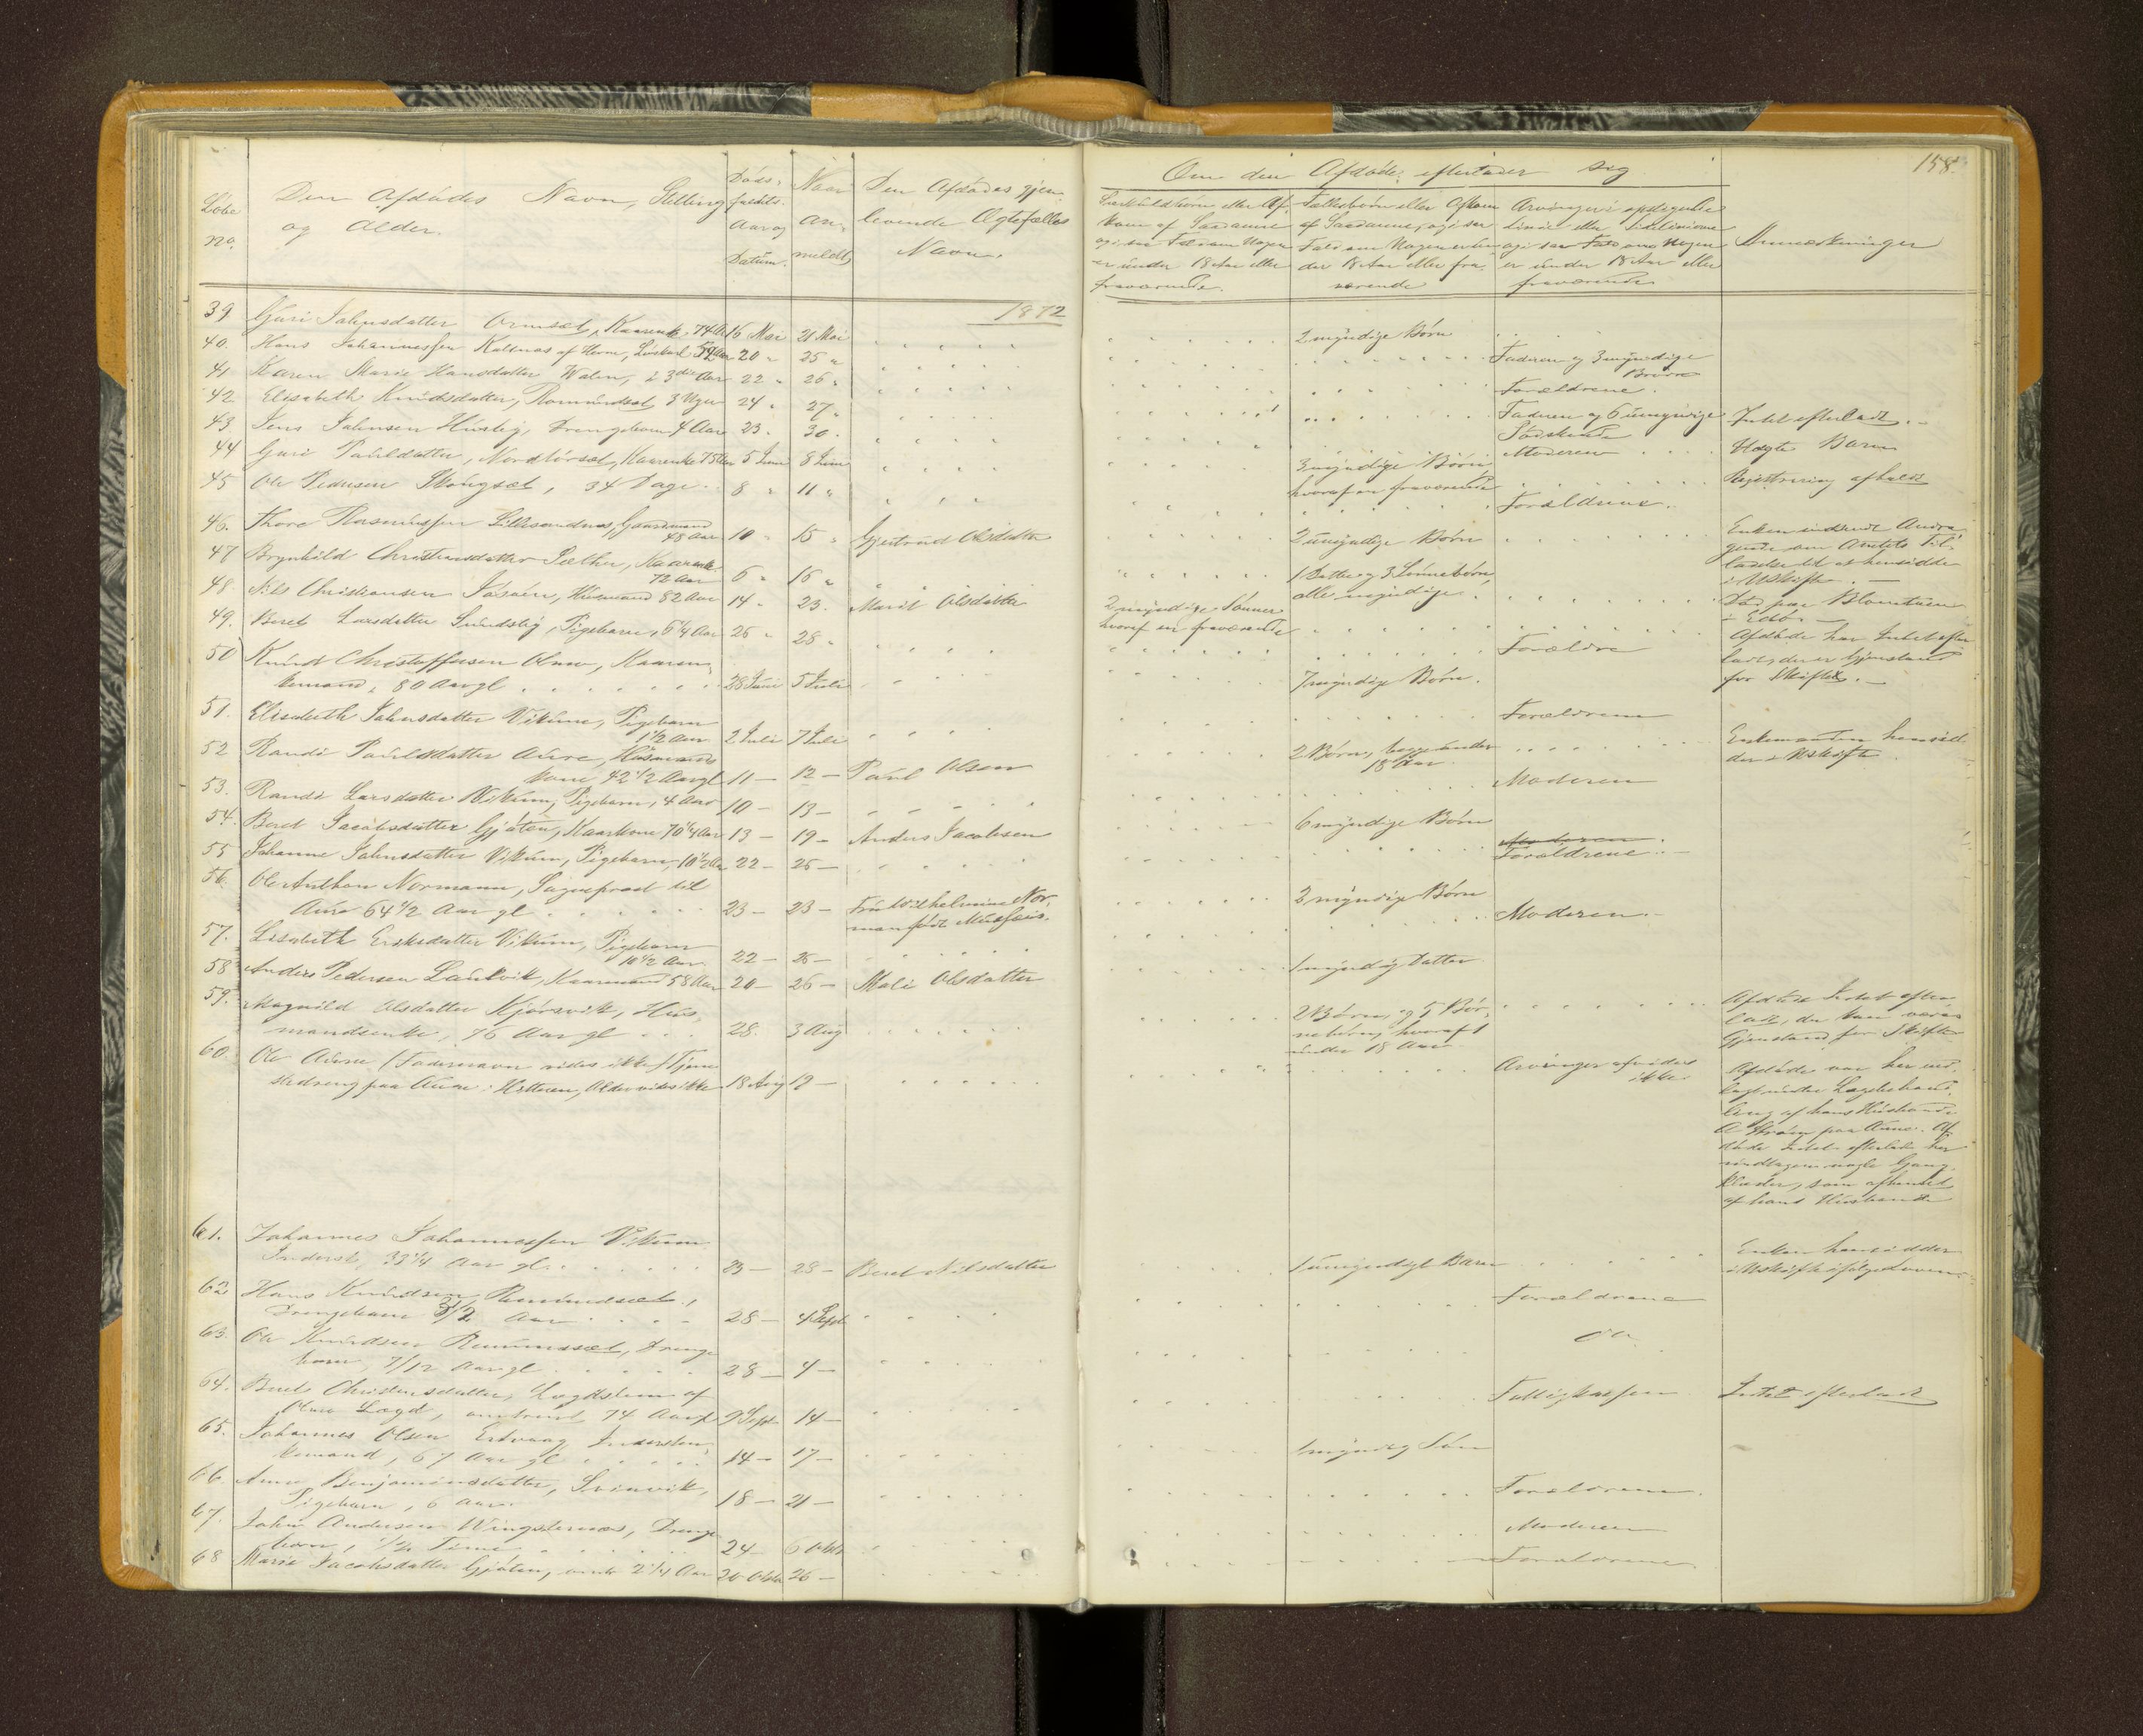 158.
Løbe no.
Den Afdødes Navn, Stilling og Alder.
Døds-faldets Aar og Datum.
Naar an-meldt
Den Afdødes gjen-levende Ægtefælles Navn.
Om den Afdøde efterlader sig
Særkuldbørn eller Af-kom af Saadanne og i saa Fald om Nogen er under 18 Aar eller fraværende.
Fællesbørn eller Afkom af Saadanne, og i saa Fald om Nogen er un-der 18 Aar eller fra-værende
Arvinger i opstigende Linie eller Sidelinierne og i saa Fald om Nogen er under 18 Aar eller fraværende
Anmærkninger
1872
39 Guri Johnsdatter Ormset, Kaarenke, 74 Aar 16 Mai 21 Mai 2 myndige Børn
40. Hans Johannessen Kalsnæs af Hevne, 20 " 25 " Faderen og 3 myndige
41 Karen Marie Hansdatter Walen, i 3die Aar 22 " 26 " Forældrene.
42 Elisabeth Knudsdatter, Romundset 3 Uger 24 " 27 " Faderen og 6 umyndige Sødskende Intet efterladt.
43. Jens Johnsen Husby, Drengebarn 4 Aar 23 " 30 " Moderen Uægte Barn
44 Guri Paulsdatter, Nordlørset, Kaarenke 75 Aar 5 Juni 8 Juni 3 myndige Børn hvoraf en fraværende Registrering afholdt
45 Ole Pedersen Skongset, 34 Dage 8 " 11 " Forældrene.
46. Thore Rasmussen Lillesandnes, Gaardmand 48 Aar 10 " 15 " Gjertrud Olsdatter 2 umyndige Børn Enken indsendt Andra-gende om Amtets Til-ladelse til at hensidde i Uskifte.
47 Brynhild Christensdatter Sæther, Kaarenke 72 Aar 6 " 16 " 1 Datter og 3 Sønnebørn alle myndige.
48. Nils Christiansen Husmand 82 Aar 14 " 23. Marit Olsdatter 2 myndige Sønner hvoraf en fraværende Død paa i Edø.
49. Beret Larsdatter Sundsby, Pigebarn, 6 1/4 Aar 25 " 28 " Forældre Afdøde har Intet efter-ladt, der er Gjenstand for Skifte.
50 Knud Christoffersen Olsvo, Kaaren-kemand, 80 Aar gl. 28 Juni 5 Juli 7 myndige Børn.
51. Elisabeth Johnsdatter Vikum, Pigebarn 1 1/2 Aar 2 Juli 7 Juli Forældrene
52 Randi Paulsdatter Aure, Husmands-kone 42 1/2 Aar gl 11 — 12 — Paul Olsen 2 Børn, begge under 18 Aar Enkemanden hensid-der i Uskifte.
53. Randi Larsdatter Vikum, Pigebarn, 4 Aar 10 — 13 — Moderen
54. Beret Jacobsdatter Gjøten, Kaarkone 70 1/4 Aar 13 — 19 — Anders Jacobsen 6 myndige Børn
55 Johanne Johnsdatter Vikum, Pigebarn, 10 1/2 Aar 22 — 25 — Moderen Forældrene.
56. Ole Anthon Normann, Sogneprest til Aure 64 1/2 Aar gl 23 — 23 — Fru Wilhelmine Nor-man født 3 myndige Børn
57. Lisabeth Eriksdatter Vikum, Pigebarn 10 1/2 Aar 22 — 25 — Moderen.
58 Anders Pedersen Laukvik, Kaarmand 58 Aar 20 — 26 — Mali Olsdatter 1 myndig Datter
59. Magnild Olsdatter Kjørsvik, Hus-mandsenke, 76 Aar gl 28. 3 Aug 2 Børn, og 5 Bør-nebørn, hvoraf 1 under 18 Aar Afdøde Intet efter-ladt, der kan være Gjenstand for Skifte
60. Ole Aune (Fadernavn vides ikke) Tjene-stedreng paa Aune i Hitteren, Alder vides ikke 18 Aug 12 — Arvinger vides ikke Afdøde var her ind-lagt under Lægebehand-ling af hans Husbonde A Strøm paa Aune. Af-døde Intet efterladt her undtagen nogle Gang-klæder, som afhentet af hans Husbonde
61. Johannes Johannessen Vikum Inderst, 33 1/4 Aar gl. 23 — 28 — Beret Nilsdatter 1 umyndigt Barn Enken hensidder i Uskifte ifølge Loven.
62 Hans Knudsen Romundset, Drengebarn 3 1/2 Aar 28 — 4 Sept Forældrene
63. Ole Knudsen Romundset, Drenge-barn, 7/12 Aar gl 28 — 4 — do
64. Beret Christensdatter, Lægdslem af Lægd, omtrent 74 Aar gl 9 Sept 14 — Fattigkassen Intet efterladt
65. Johannes Olsen Ertvaag, Indersten-kemand, 67 Aar gl 14 — 17 — 1 myndig Søn
66. Anne Benjaminsdatter, Svinvik, Pigebarn, 6 Aar. 18 — 21 — Forældrene.
67. John Andersen Wingsternæs, Drenge-barn, 1/2 Time 24 — 6 Oktb Moderen
68 Marie Jacobsdatter Gjøten, omtr 2 1/4 Aar 20 Oktb 26 — Forældrene.